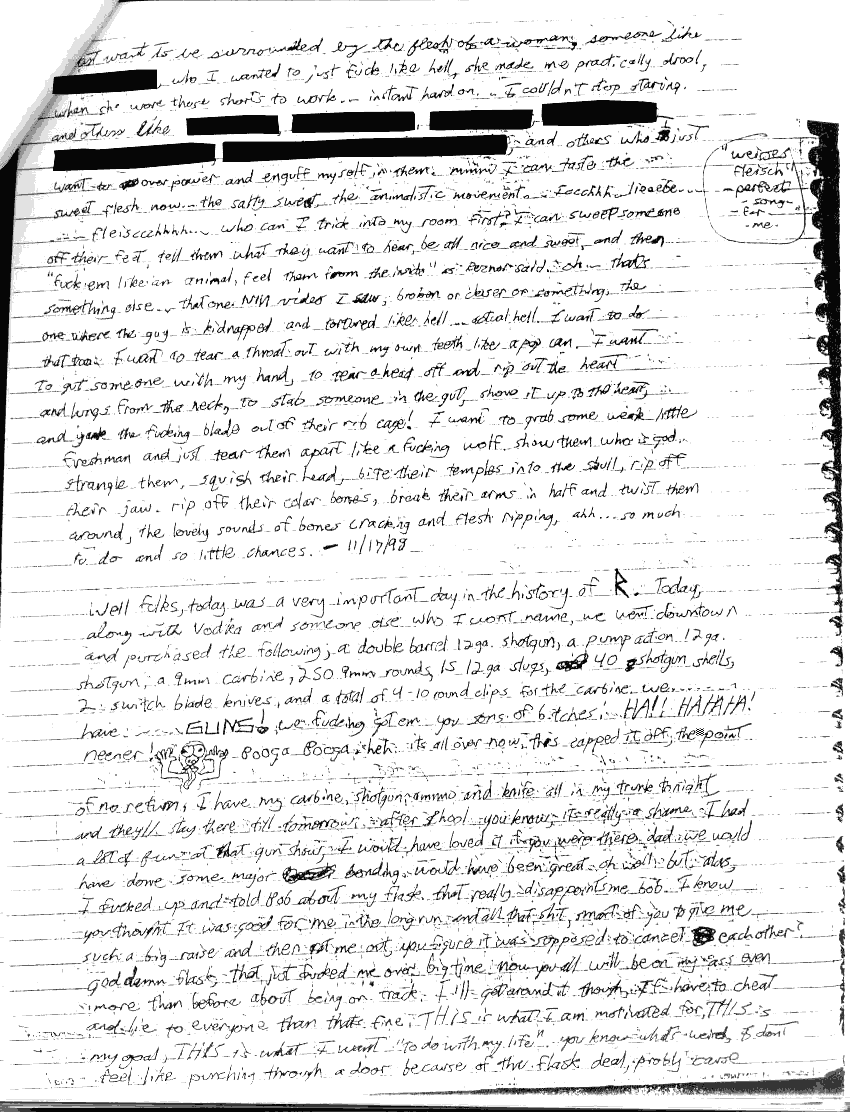 just want to be surrounded by the flesh of a woman, someone like
, who I wanted to just fuck like hell, she made me practically drool,
when she wore those shorts to work... instant hard on. I couldn't stop staring.
and others like , , , ,
, , and others who I just
want to over power and engulf myself in them. mmmm I can taste the
sweet flesh now... the salty sweet, the animalistic movement... Iccchhh... lieeebe...
....fleisccchhhh... who can I trick into my room first? I can sweep someone
off their feet, tell them what they want to hear, be all nice and sweet, and then
"fuck em like an animal, feel them from the inside" as Reznor said. oh... thats
something else... that one NIN video I saw, broken or closer or something, the
one where the guy is kidnapped and tortured like hell... actual hell. I want to do
that too. I want to tear a throat out with my own teeth like a pop can. I want
to gut someone with my hand, to tear a head off and rip out the heart
and lungs from the neck, to stab someone in the gut, shove it up to the heart,
and yank the fucking blade out of their rib cage! I want to grab some weak little
freshman and just tear them apart like a fucking wolf. show them who is god.
strangle them, squish their head, bite their temples into the skull, rip off
their jaw. rip off their colar bones, break their arms in half and twist them
around, the lovely sounds of bones cracking and flesh ripping, ahh... so much
to do and so little chances. - 11/17/98
"weisses
fleisch"
-perfect
-song-
-for-
-me.
Well folks, today was a very important day in the history of R. Today,
along with Vodka and someone else who I wont name, we went downtown
and purchased the following; a double barrel 12 ga. shotgun, a pump action 12 ga.
shotgun, a 9mm carbine, 250 9mm rounds, 15 12ga slugs, 40 shotgun shells,
2 switch blade knives, and a total of 4-10 round clips for the carbine. we........
have....... GUNS! we fucking got em you sons of bitches! HA!! HAHAHA!
neener! Booga Booga. heh. its all over now, this capped it off, the point
of no return, I have my carbine, shotgun, ammo and knife all in my trunk tonight
and they'll stay there till tomorrow... after school you know, its really a shame. I had
a lot of fun at that gun show, I would have loved it if you were there dad. we would
have done some major bonding. would have been great. oh well. but alas,
I fucked up and told Bob about my flask. that really disappoints me bob. I know
you thought it was good for me in the long run and all that shit, smart of you to give me
such a big raise and then rat me out, you figure it was supposed to cancel each other?
god damn flask, that just fucked me over big time. now you all will be on my ass even
more than before about being on track. I'll get around it though, if I have to cheat
and lie to everyone than thats fine. THIS is what I am motivated for, THIS is
my goal, THIS is what I want "to do with my life". you know what's weird, I dont
feel like punching through a door because of the flask deal, probly cause